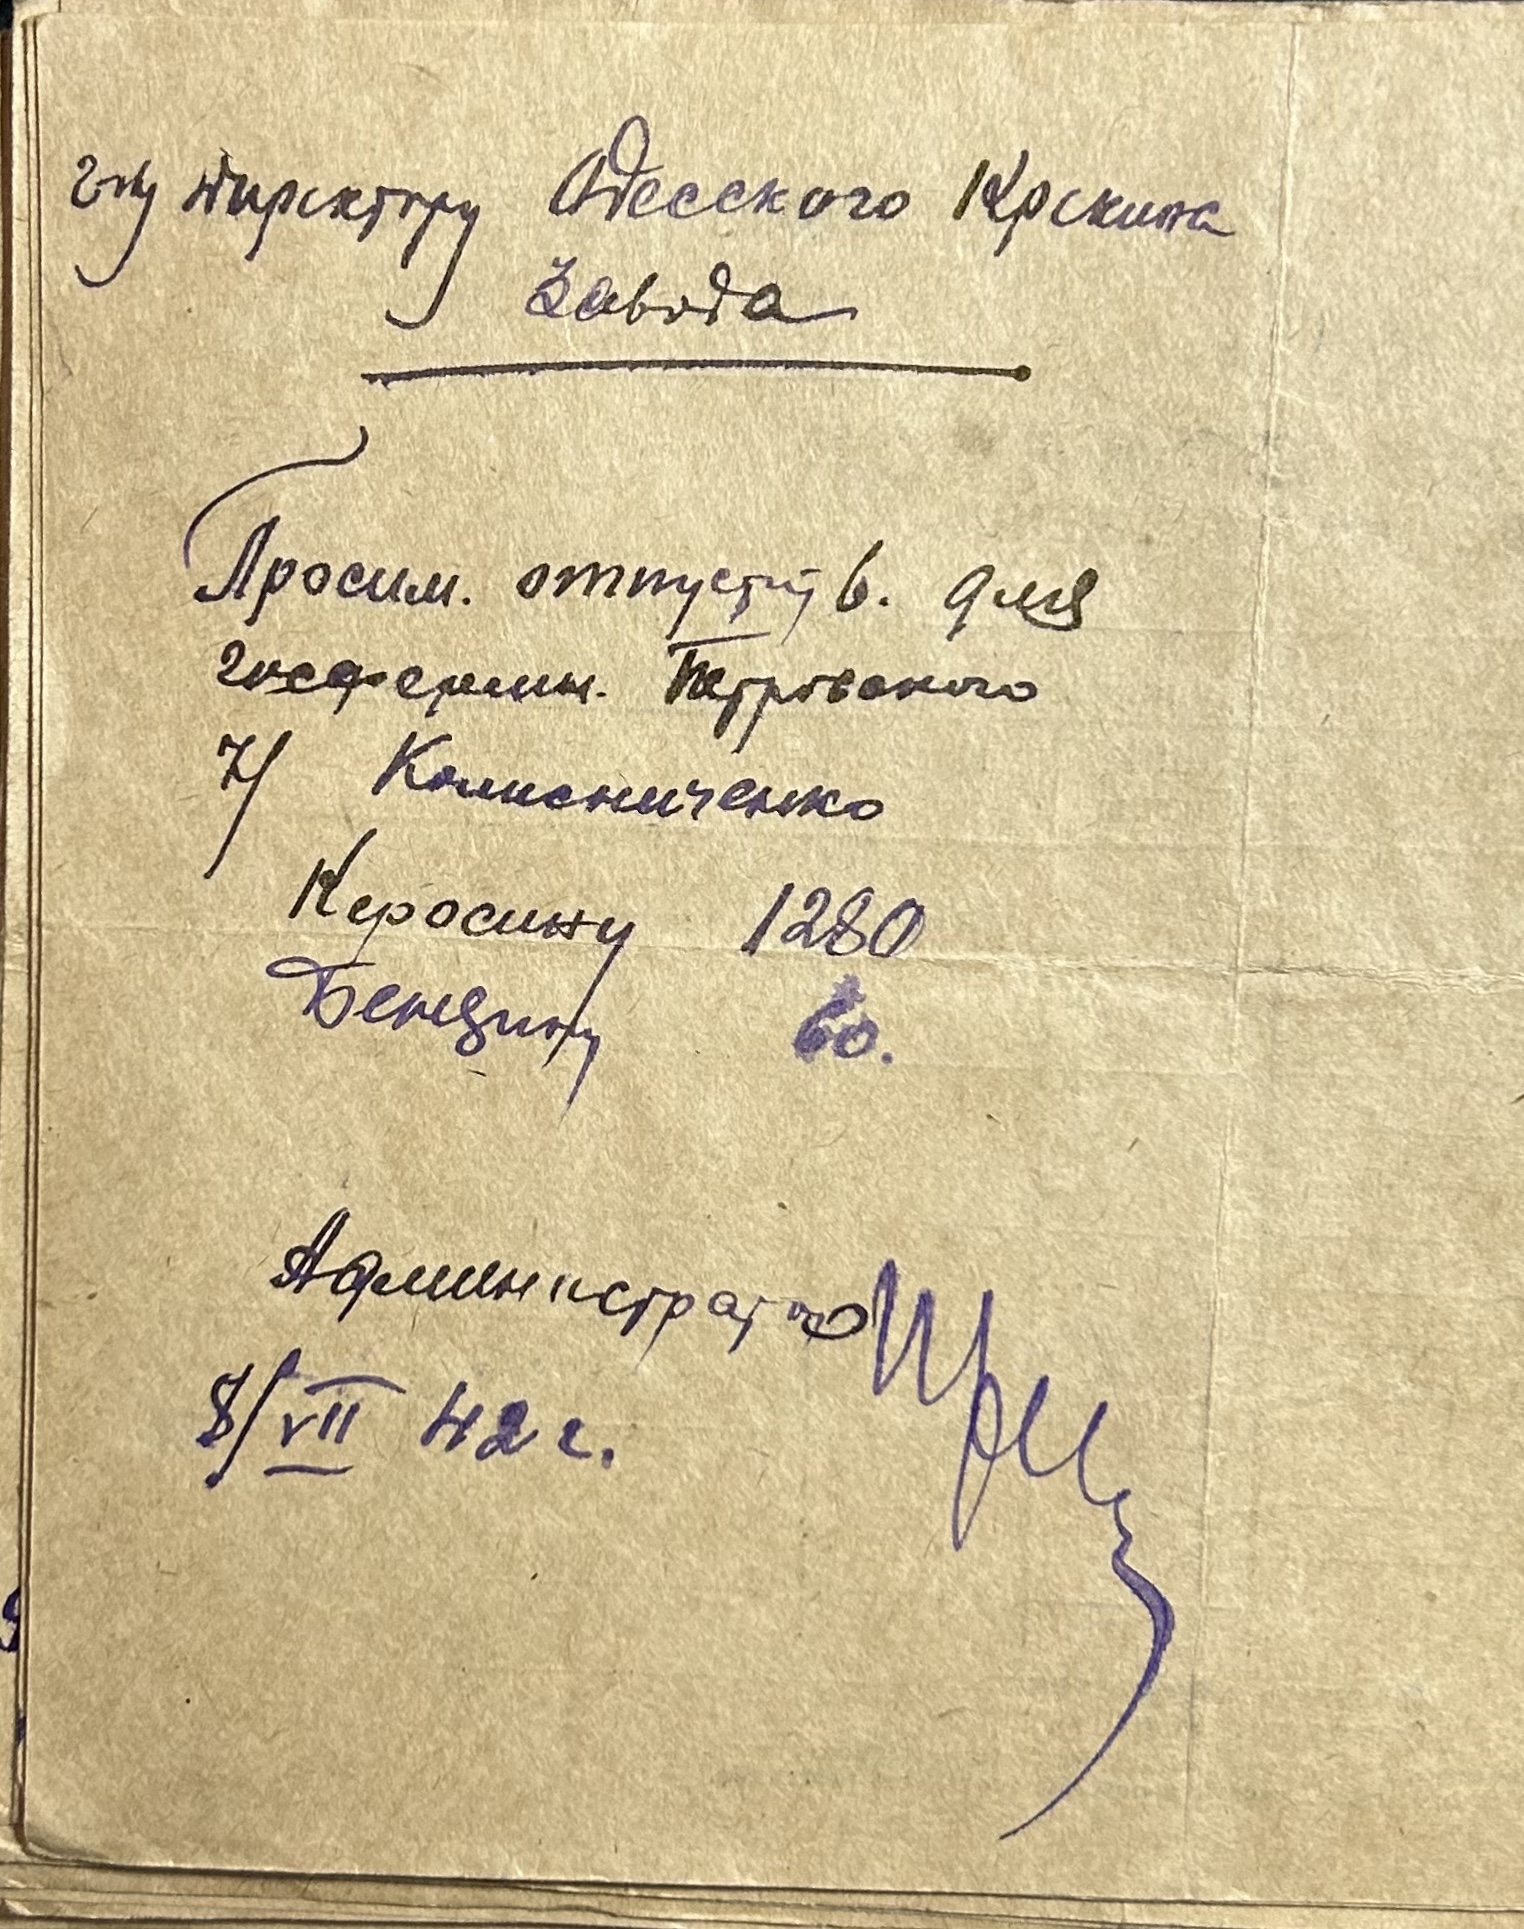 г-ну Директору Одесского Крекинга
завода
Просим. отпустить. для
госфермы. Петровского
ч/ Колисниченко
Керосину 1280
Бензину 60.
Администратор
8/VII 42 г.